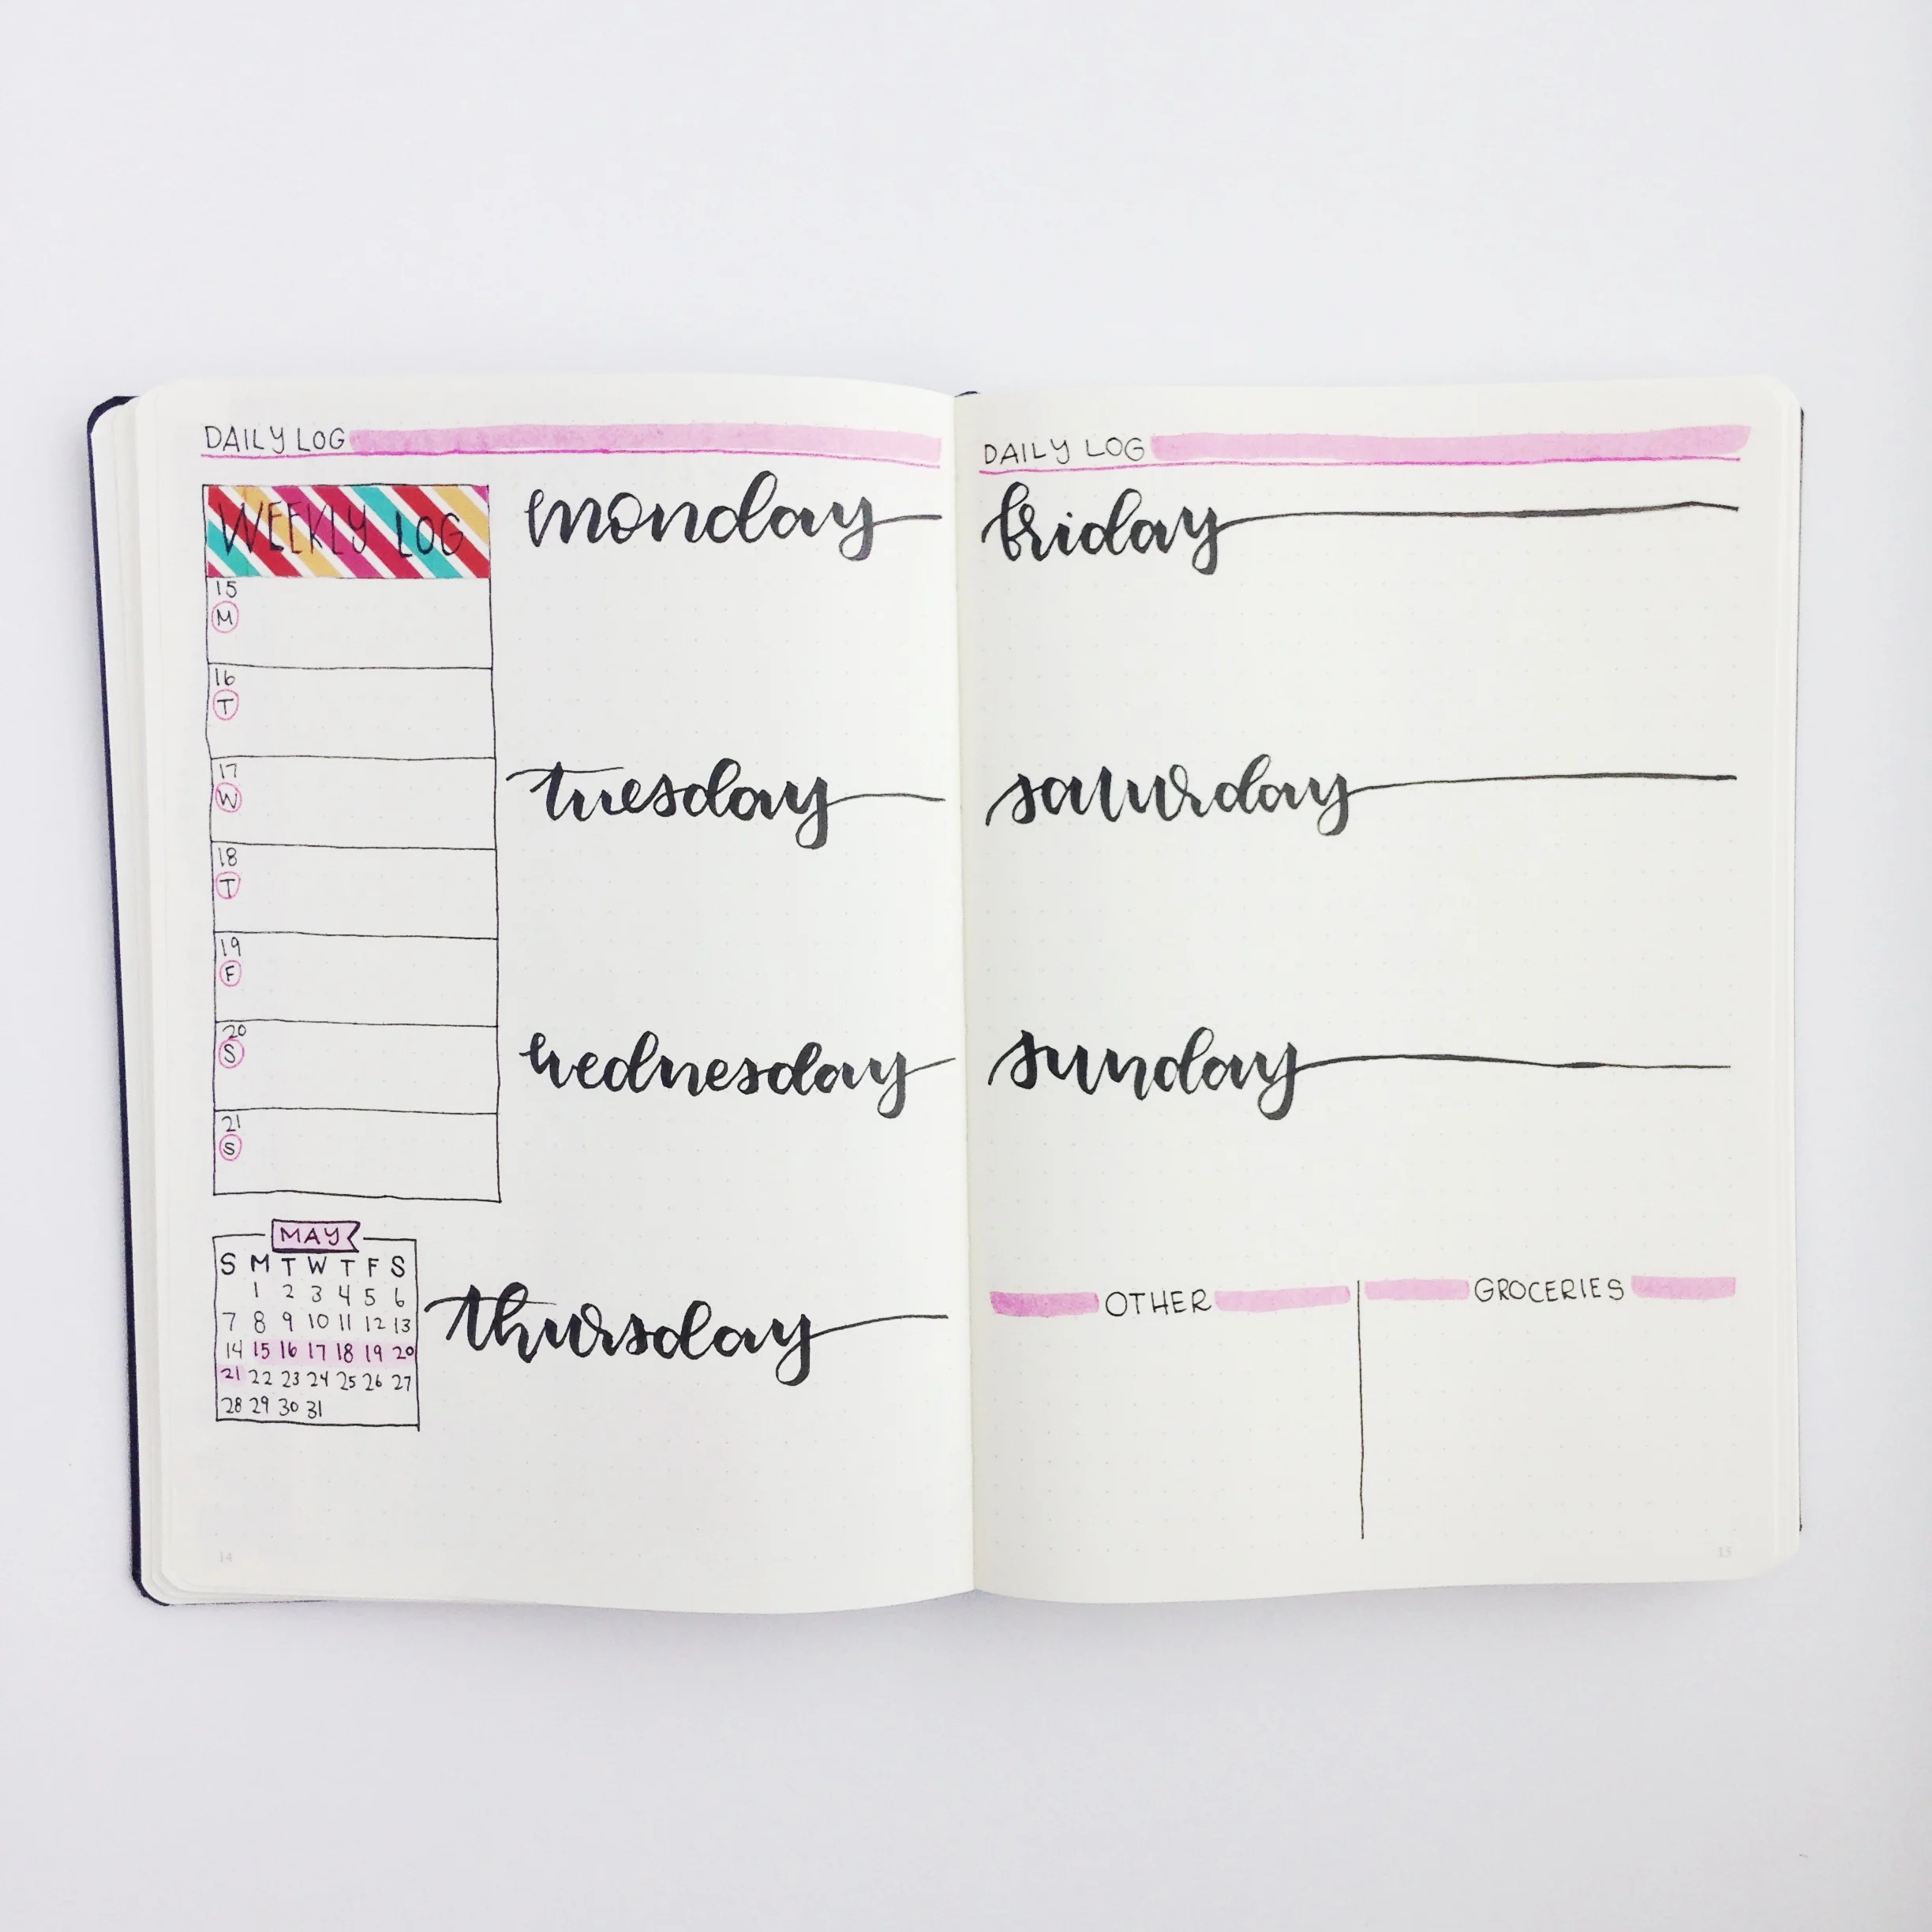 DAILY LOG
WEEKLY LOG
15
M
16
T
17
W
18
T
19
F
20
S
21
S
monday
tuesday
wednesday
thursday
MAY
S M T W T F S
1 2 3 4 5 6
7 8 9 10 11 12 13
14 15 16 17 18 19 20
21 22 23 24 25 26 27
28 29 30 31
14
DAILY LOG
friday
saturday
sunday
OTHER
GROCERIES
15